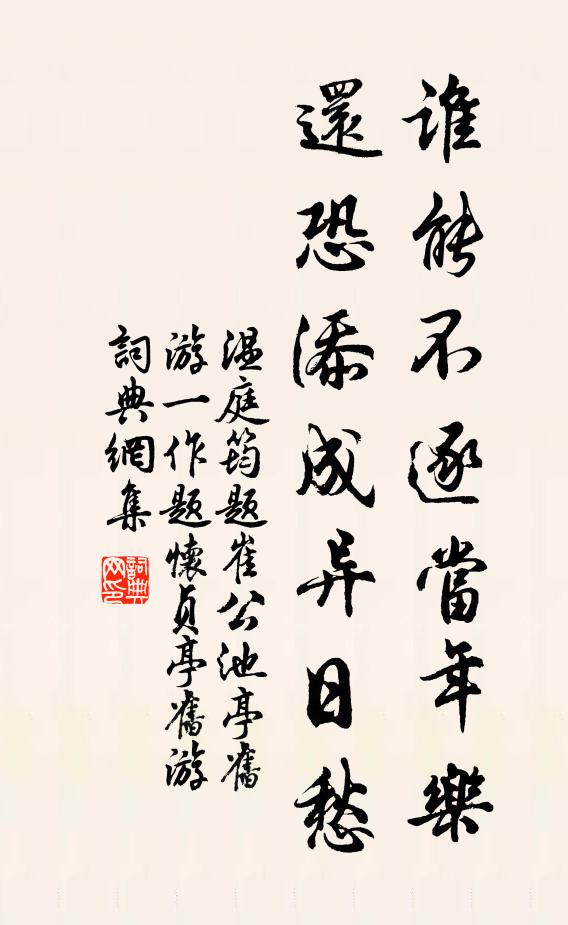 誰能不逐當年樂
還恐添成异日愁
温庭筠題崔公池亭舊
游一作題懷貞亭舊游
詞典網集
詞典网印